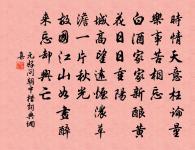 時情天意枉論量
樂事苦相忘
白酒家家新釀黄
花日日重陽
城高望遠煙濃草
澹一片秋光
故國江山如畫醉
來忘却興亡
元好問朝中措詞典調
集